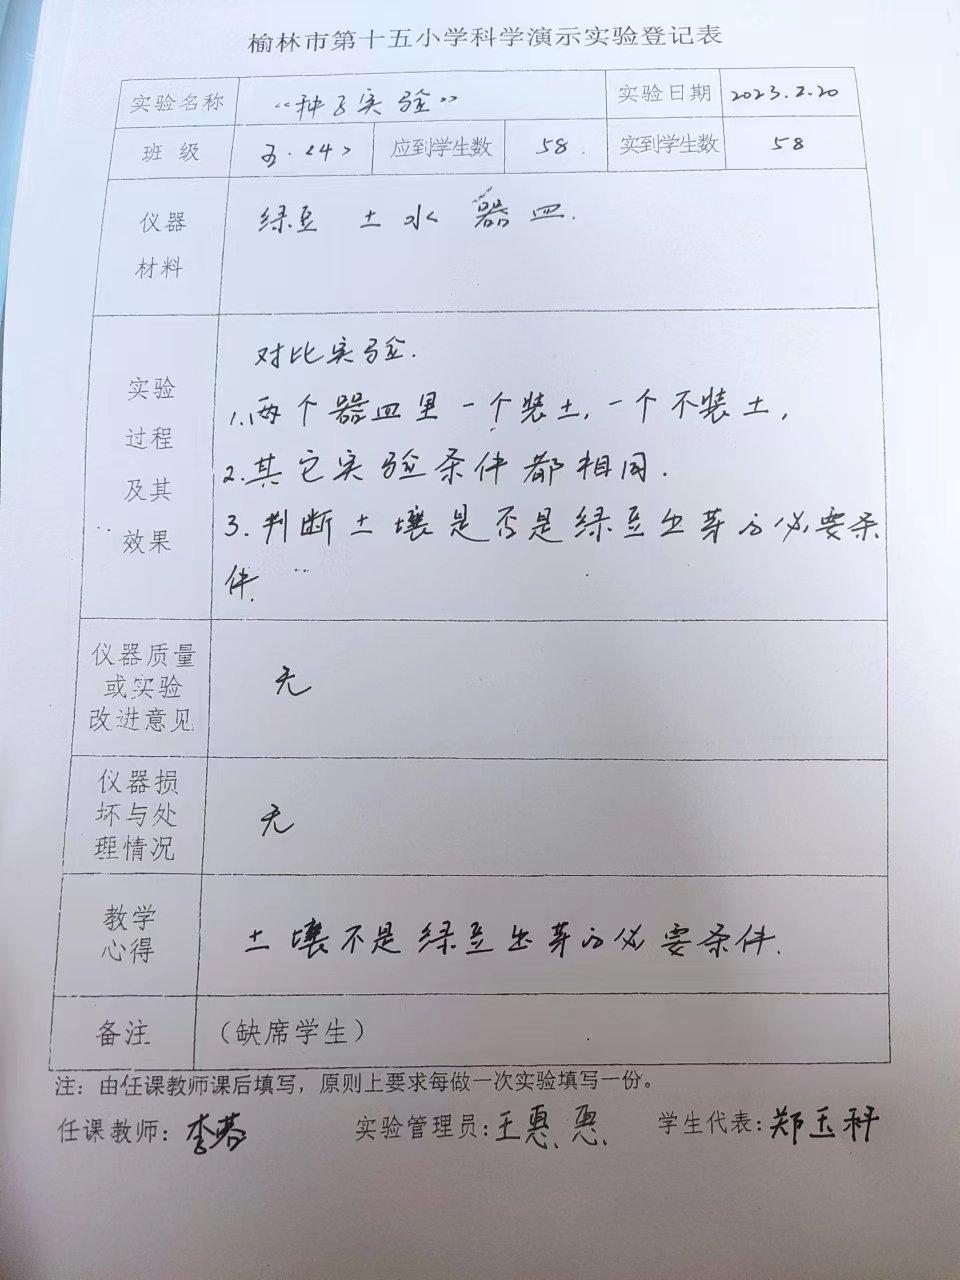 榆林市第十五小学科学演示实验登记表
实验名称 “种子实验” 实验日期 2023.2.20
班 级 五.〈4〉 应到学生数 58. 实到学生数 58
仪器
材料
绿豆 土 水 器皿.
实验
过程
及其
效果
对比实验.
1.两个器皿里一个装土,一个不装土,
2.其它实验条件都相同.
3.判断土壤是否是绿豆出芽的必要条
件.
仪器质量
或实验
改进意见
无
仪器损
坏与处
理情况
无
教学
心得
土壤不是绿豆出芽的必要条件.
备注 （缺席学生）
注：由任课教师课后填写，原则上要求每做一次实验填写一份。
任课教师：李 实验管理员：王惠惠. 学生代表：郑玉科